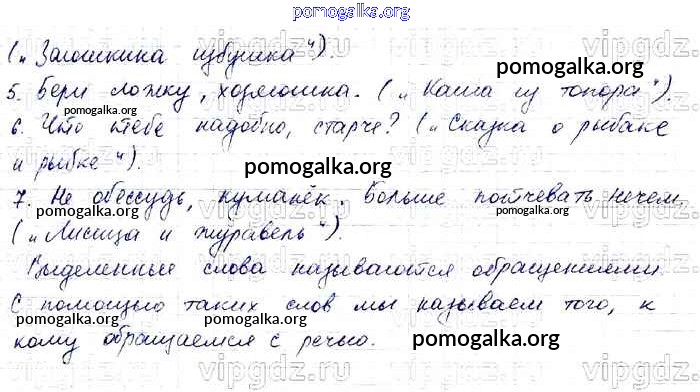 pomogalka.org
(„Заюшкина избушка").
pomogalka.org
5. Бери ложку, хозяюшка. („Каша из топора").
pomogalka.org
6. Что тебе надобно, старче? („Сказка о рыбаке
и рыбке").
pomogalka.org
7. Не обессудь, куманёк. Больше потчевать нечем.
pomogalka.org pomogalka.org
(„Лисица и журавель").
Выделенные слова называются обращениями.
С помощью таких слов мы называем того, к
pomogalka.org pomogalka.org
кому обращаемся с речью.
pomogalka.org